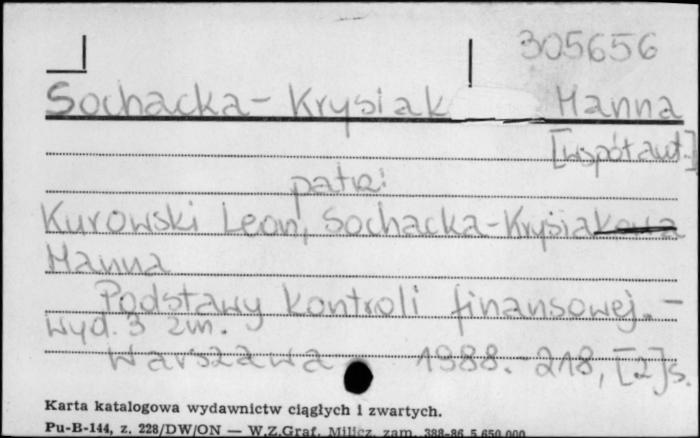 305656
Sochacka-Krysiak Hanna
[współaut.]
patrz:
Kurowski Leon, Sochacka-Krysiakowa
Hanna
Podstawy kontroli finansowej. -
Wyd. 3 zm.
Warszawa 1988. - 218, [2] s.
Karta katalogowa wydawnictw ciągłych i zwartych.
Pu-B-144, z. 228/DW/ON — W.Z.Graf. Milicz, zam. 388-86 5 650 000